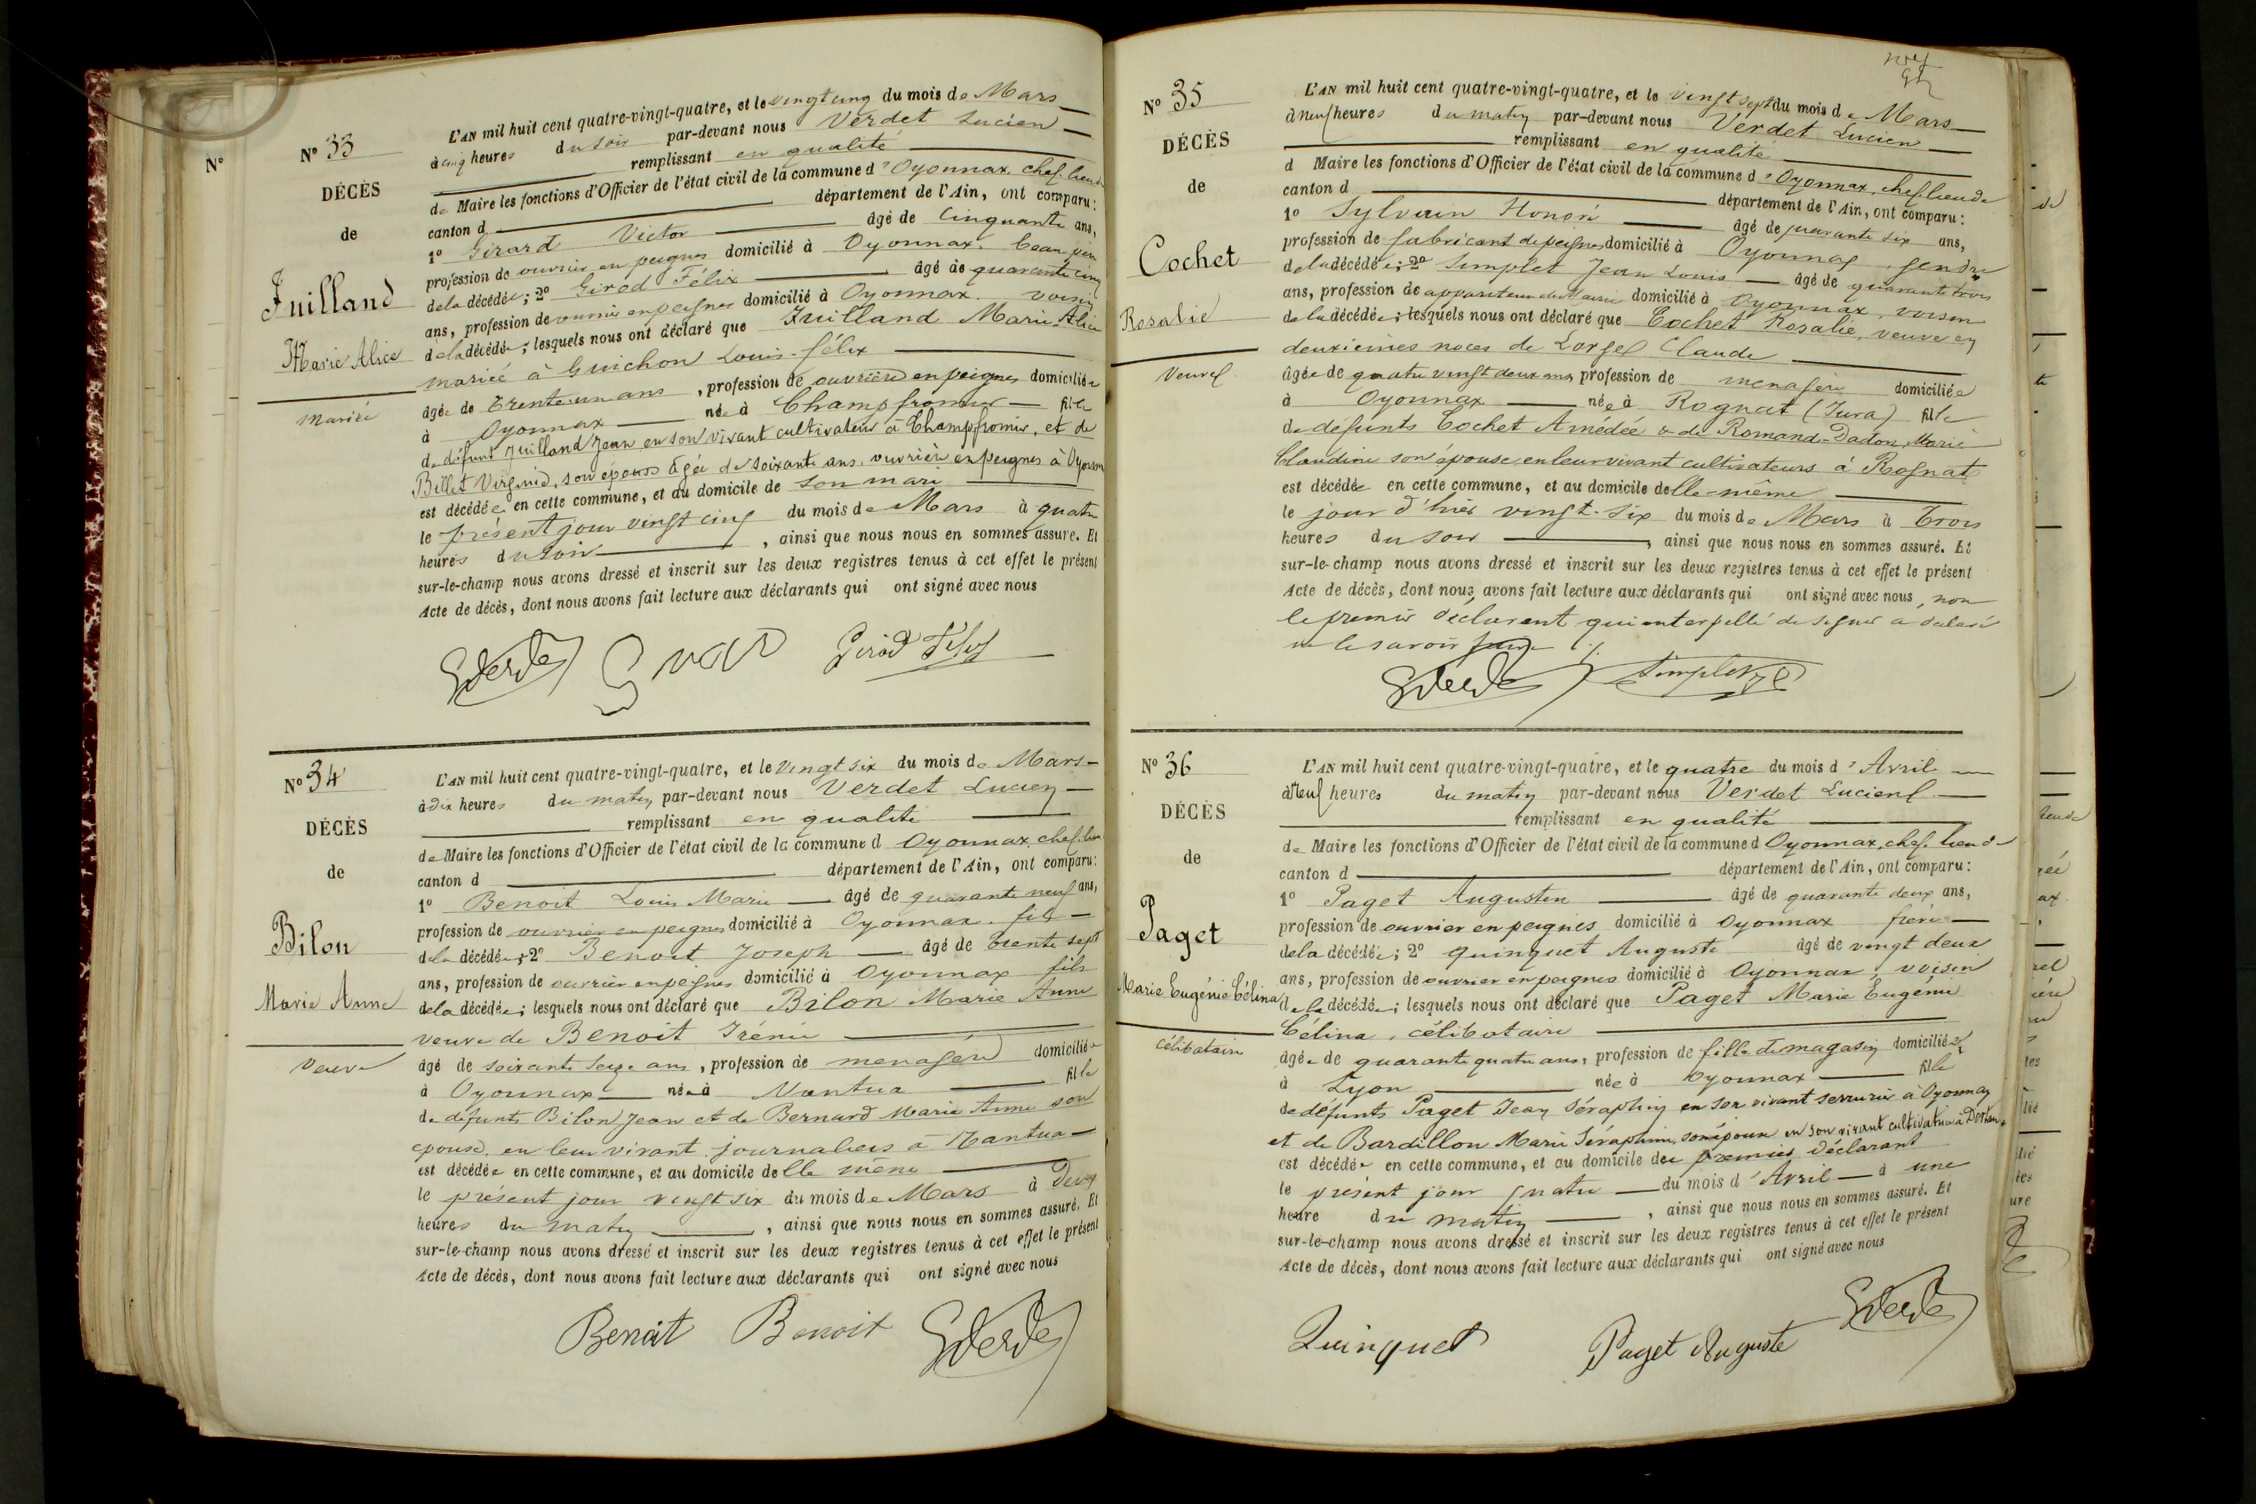 N°
N° 33
DÉCÈS
de
Juilland
Marie Alice
mariée
L'AN mil huit cent quatre-vingt-quatre, et le vingt cinq du mois de Mars
à cinq heures du soir par-devant nous Verdet Lucien
remplissant en qualité
de Maire les fonctions d'Officier de l'état civil de la commune d'Oyonnax, chef-lieu de
canton d département de l'Ain, ont comparu:
1° Girard Victor âgé de Cinquante ans,
profession de ouvrier en peignes domicilié à Oyonnax. beau père
de la décédée; 2° Girod Félix âgé de quarante cinq
ans, profession de ouvrier en peignes domicilié à Oyonnax. voisin
de la décédée; lesquels nous ont déclaré que Juilland Marie Alice
mariée à Guichon Louis-félix
âgée de trente un ans, profession de ouvrière en peignes domiciliée
à Oyonnax née à Champfromier fille
de défunt Juilland Jean en son vivant cultivateur à Champfromier, et de
Billet Virginie, son épouse âgée de soixante ans, ouvrière en peignes à Oyonnax
est décédée en cette commune, et au domicile de son mari
le présent jour vingt cinq du mois de Mars à quatre
heures du soir, ainsi que nous nous en sommes assuré. Et
sur-le-champ nous avons dressé et inscrit sur les deux registres tenus à cet effet le présent
Acte de décès, dont nous avons fait lecture aux déclarants qui ont signé avec nous
Girod Félix
N° 34
DÉCÈS
de
Bilon
Marie Anne
Veuve
L'AN mil huit cent quatre-vingt-quatre, et le vingt six du mois de Mars
à dix heures du matin par-devant nous Verdet Lucien
remplissant en qualité
de Maire les fonctions d'Officier de l'état civil de la commune d Oyonnax, chef-lieu
canton d département de l'Ain, ont comparu:
1° Benoit Louis Marie âgé de quarante neuf ans,
profession de ouvrier en peignes domicilié à Oyonnax. fils
de la décédée; 2° Benoit Joseph âgé de trente sept
ans, profession de ouvrier en peignes domicilié à Oyonnax fils
de la décédée; lesquels nous ont déclaré que Bilon Marie Anne
veuve de Benoit Irénée
âgé de soixante seize ans, profession de menagère domiciliée
à Oyonnax née à Nantua fille
de défunts Bilon Jean et de Bernard Marie Anne son
epouse, en leur vivant journaliers à Nantua
est décédée en cette commune, et au domicile d elle même
le présent jour vingt six du mois de Mars à Deux
heures du matin, ainsi que nous nous en sommes assuré. Et
sur-le-champ nous avons dressé et inscrit sur les deux registres tenus à cet effet le présent
Acte de décès, dont nous avons fait lecture aux déclarants qui ont signé avec nous
Benoit Benoit
N° 35
DÉCÈS
de
Cochet
Rosalie
Veuve
L'AN mil huit cent quatre-vingt-quatre, et le vingt sept du mois de Mars
à neuf heures du matin par-devant nous Verdet Lucien
remplissant en qualité
d Maire les fonctions d'Officier de l'état civil de la commune d'Oyonnax, chef lieu de
canton d département de l'Ain, ont comparu:
1° Sylvain Honoré âgé de quarante six ans,
profession de fabricant de peignes domicilié à Oyonnax, gendre
de la décédée; 2° Simplet Jean Louis âgé de quarante trois
ans, profession de appariteur de Mairie domicilié à Oyonnax, voisin
de la décédée; lesquels nous ont déclaré que Cochet Rosalie, veuve en
deuxièmes noces de Lorge Claude
âgée de quatre vingt deux ans, profession de menagère domiciliée
à Oyonnax née à Rognat (Jura) fille
de défunts Cochet Amédée & de Romand-Dadon, Marie
Claudine son épouse, en leur vivant cultivateurs à Rognat
est décédée en cette commune, et au domicile d elle-même
le jour d'hier vingt-six du mois de Mars à trois
heures du soir, ainsi que nous nous en sommes assuré. Et
sur-le-champ nous avons dressé et inscrit sur les deux registres tenus à cet effet le présent
Acte de décès, dont nous avons fait lecture aux déclarants qui ont signé avec nous, non
le premier déclarant qui interpellé de signer a déclaré
ne le savoir faire
Simplet
N° 36
DÉCÈS
de
Paget
Marie Eugénie Célina
Célibataire
L'AN mil huit cent quatre-vingt-quatre, et le quatre du mois d'Avril
à Neuf heures du matin par-devant nous Verdet Lucien
remplissant en qualité
de Maire les fonctions d'Officier de l'état civil de la commune d Oyonnax, chef-lieu de
canton d département de l'Ain, ont comparu:
1° Paget Augustin âgé de quarante deux ans,
profession de ouvrier en peignes domicilié à Oyonnax frère
de la décédée; 2° Quinquet Auguste âgé de vingt deux
ans, profession de ouvrier en peignes domicilié à Oyonnax, voisin
de la décédée; lesquels nous ont déclaré que Paget Marie Eugénie
Célina, célibataire
âgée de quarante quatre ans, profession de fille de magasin domiciliée
à Lyon née à Oyonnax fille
de défunts Paget Jean Séraphin en son vivant serrurier à Oyonnax
et de Bardillon Marie Séraphine, son épouse en son vivant cultivatrice à Dortan
est décédée en cette commune, et au domicile du premier déclarant
le présent jour quatre du mois d'Avril à une
heure du matin, ainsi que nous nous en sommes assuré. Et
sur-le-champ nous avons dressé et inscrit sur les deux registres tenus à cet effet le présent
Acte de décès, dont nous avons fait lecture aux déclarants qui ont signé avec nous
Quinquet Paget Auguste